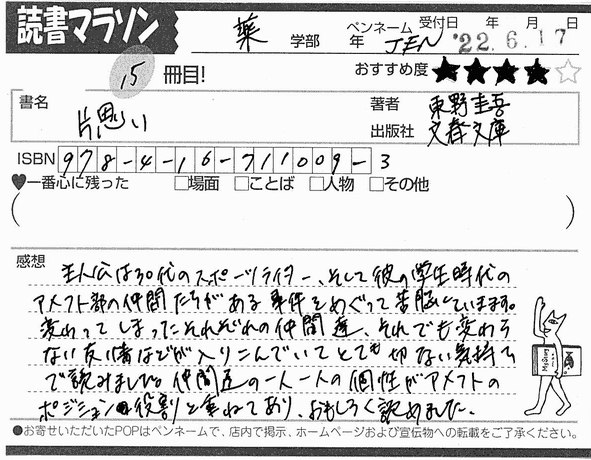 読書マラソン
薬 学部 年
ペンネーム JEN
受付日 年 月 日
'22.6.17
15 冊目!
おすすめ度 ★★★★☆
書名 片思い
著者 東野圭吾
出版社 文春文庫
ISBN 978-4-16-711009-3
♥一番心に残った □場面 □ことば □人物 □その他
( )
感想
主人公は30代のスポーツライター、そして彼の学生時代の
アメフト部の仲間たちがある事件をめぐって苦悩しています。
変わってしまったそれぞれの仲間達、それでも変わら
ない友情などが入りこんでいてとても切ない気持ち
で読みました。仲間達の一人一人の個性がアメフトの
ポジションの役割と重ねてあり、おもしろく読めました。
●お寄せいただいたPOPはペンネームで、店内で掲示、ホームページおよび宣伝物への転載をご了承ください。